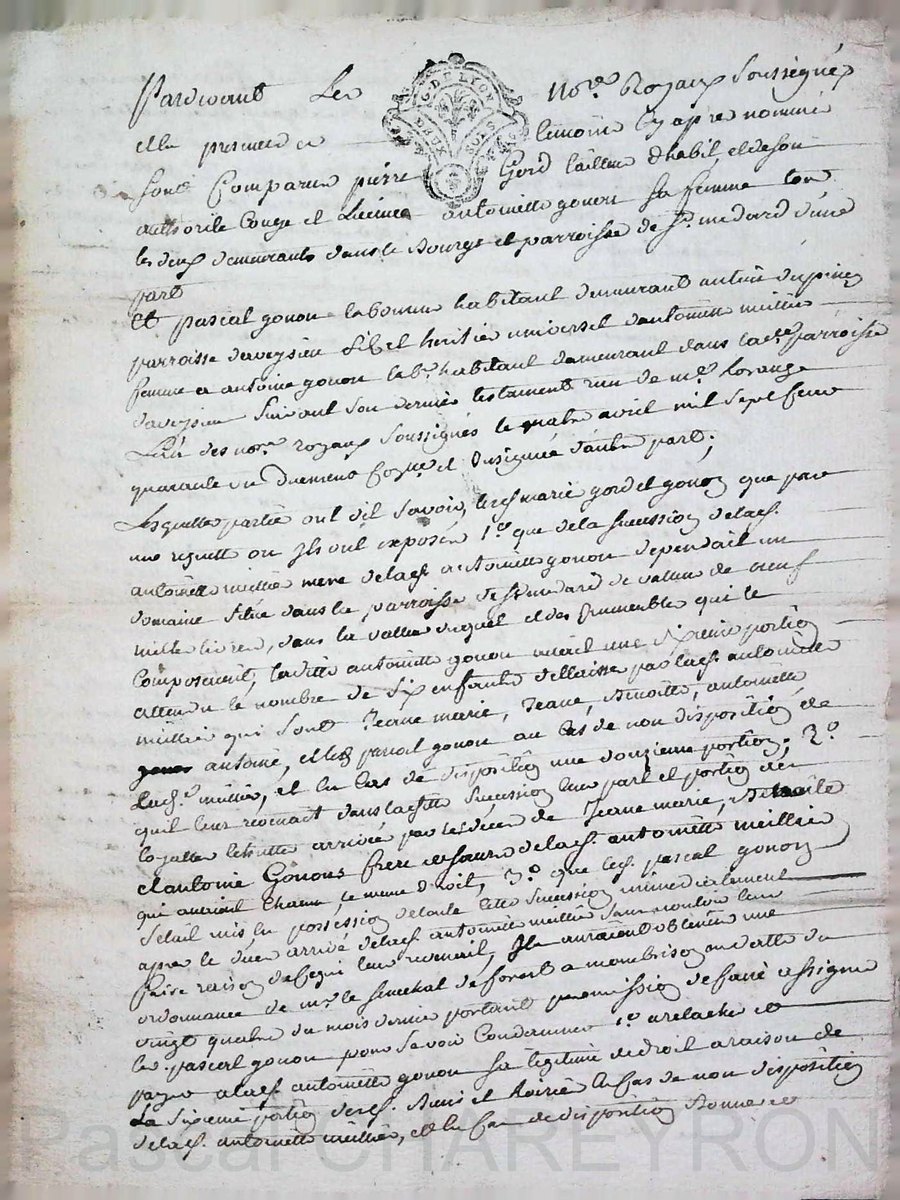 Pardevant Les Nores Royaux Soussignés
et en presence de temoins cy apres nommés
sont Comparus pierre Gord tailleur d'habit, et de son
authorité Congé et Licence antoinette gonon sa femme tous
les deux demeurants dans le Bourg et parroisse de St medard d'une
part
Et pascal gonon laboureur habitant demeurant au lieu
parroisse daveysieu fils et heritier universel d'antoinette meillier
femme a antoine gonon labr habitant demeurant dans lade parroisse
daveysieu suivant son dernier testament reçu de me
L'un des nores royaux soussignés le quatre avril mil sept cent
quarante un duement et insignué d'autre part;
Lesquelles parties ont dit savoir lesd mariés gord et gonon que par
une requette ou ils ont exposés 1o que de la succession de lad
antoinette meillier mere de lad antoinette gonon dependait un
domaine situé dans la parroisse de St medard de valeur de neuf
mille livres, dans la valleur duquel et des immeubles qui le
Composoient, laditte antoinette gonon avait une sixieme portion
attendu le nombre de six enfants dellaissés par lad antoinette
meillier qui sont Jeanemarie, Jeane, Benoitte, antoinette
antoine, et led pascal gonon au cas de non disposition de
lad meillier, et en cas de disposition une douzieme portion; 2o
qu'il leur revenait dans laditte succession leur part et portion des
arrivée par le deces de Jeane marie,
et antoine Gonons frere et soeurs de lad antoinette meillier
qui avoient chacun le meme droit, 3o que led pascal gonon
s'etait mis en possession de toute cette succession immediatement
apres le deces arrivé de lad antoinette meillier sans vouloir leur
faire raison de ce qui leur revenait, Ils auroient obtenus une
ordonnance de mr le senechal de forest a montbrison en datte du
vingt quatre du mois dernier portant permission de faire assigner
led pascal gonon pour se voir Condamner 1o a relacher et
payer a lad antoinette gonon sa legitime de droit a raison de
La sixieme portion desd Biens et hoirie au cas de non disposition
de lad antoinette meillier, et en cas de disposition
Pascal CHAREYRON